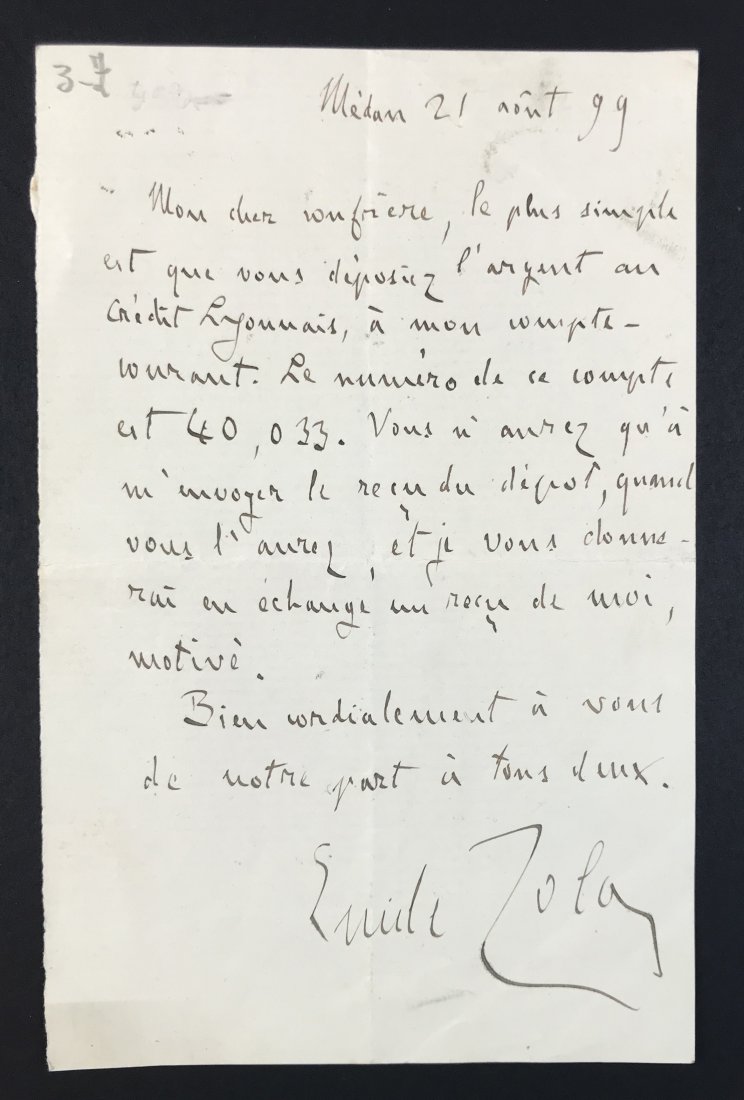 3-7
Médan 21 août 99
Mon cher confrère, le plus simple
est que vous déposiez l'argent au
Crédit Lyonnais, à mon compte-
courant. Le numéro de ce compte
est 40,033. Vous n'aurez qu'à
m'envoyer le reçu du dépôt, quand
vous l'aurez, et je vous donne-
rai en échange un reçu de moi,
motivé.
Bien cordialement à vous
de notre part à tous deux.
Emile Zola